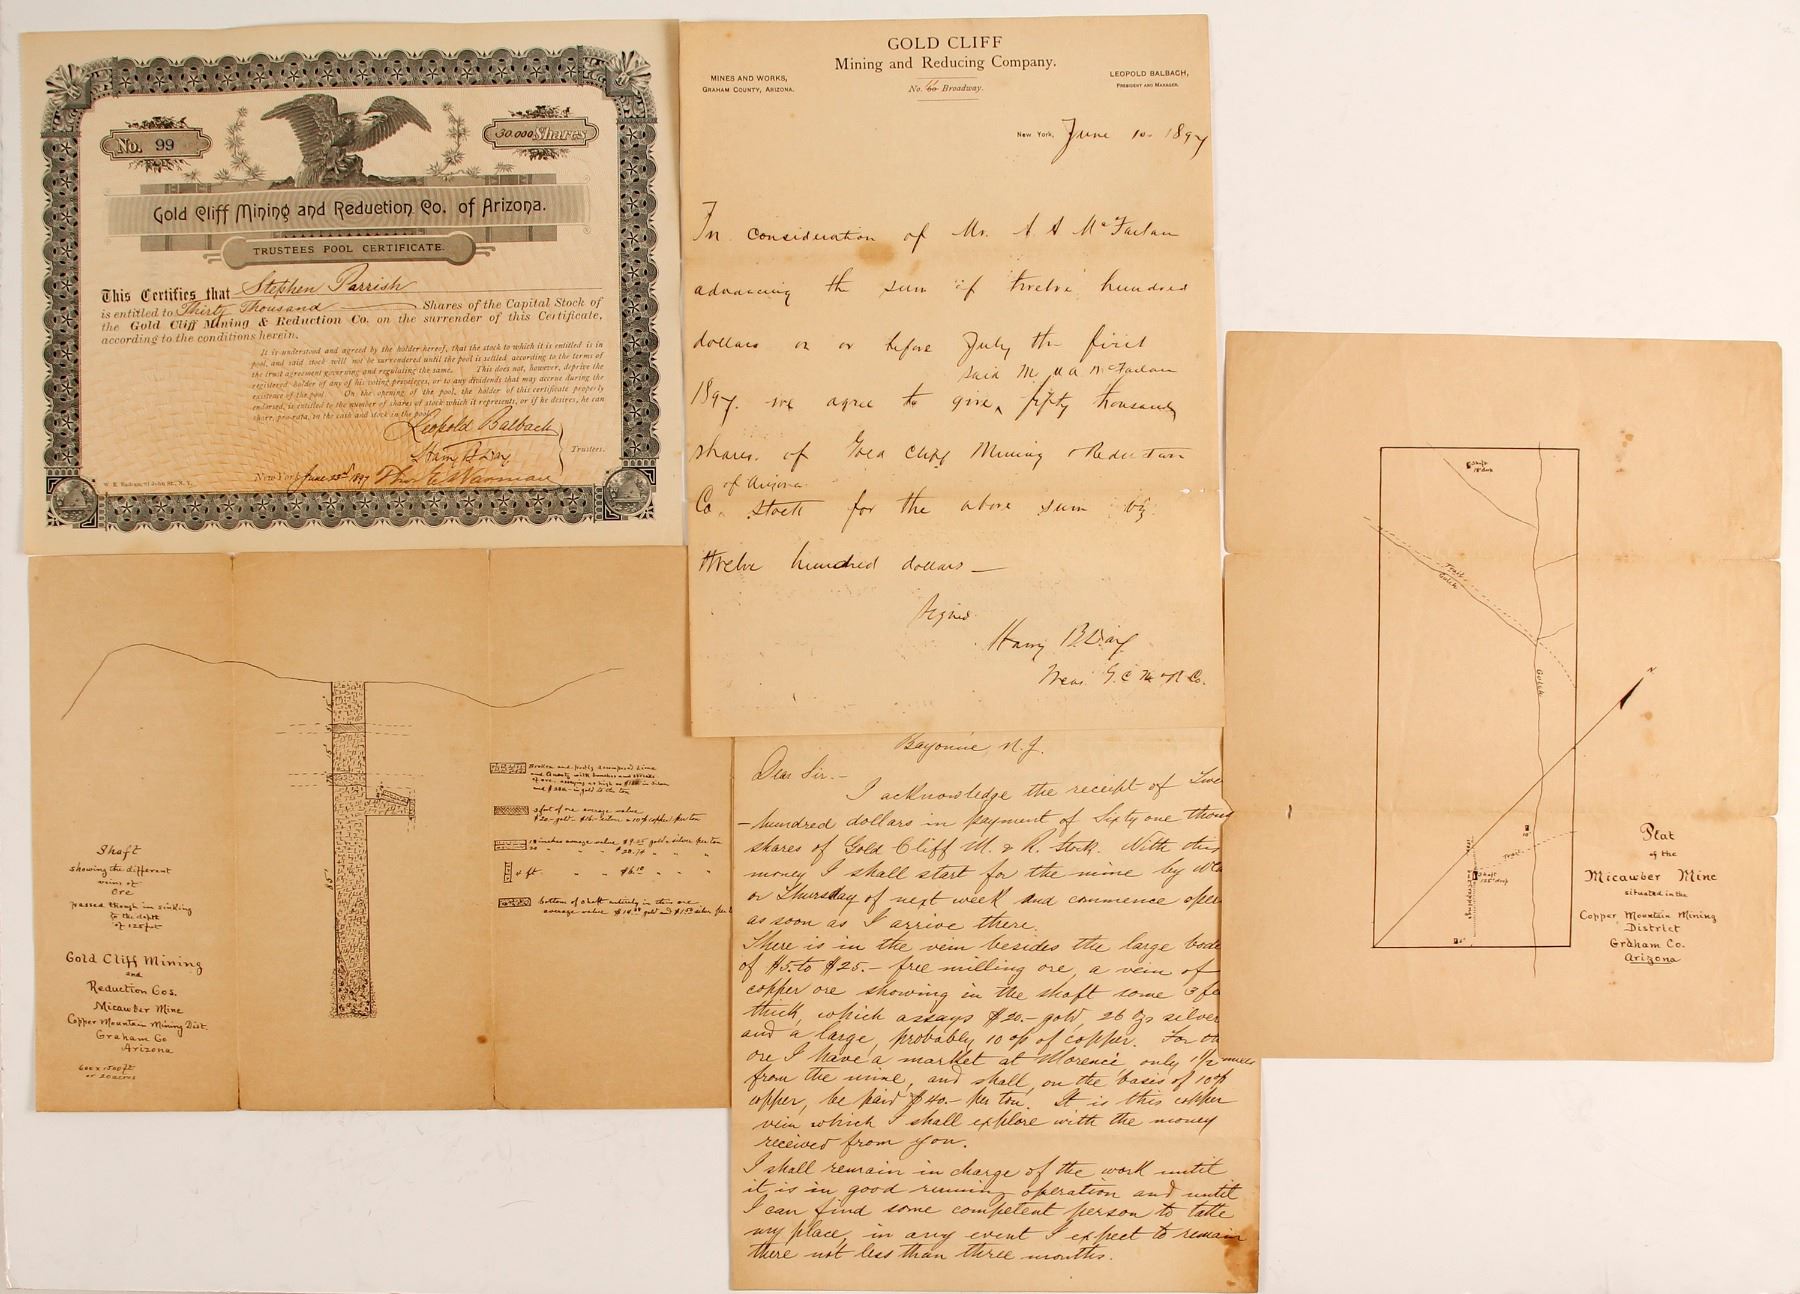 No. 99
30.000 Shares
Gold Cliff Mining and Reduction Co. of Arizona.
TRUSTEES POOL CERTIFICATE.
This Certifies that Stephen Parrish
is entitled to Thirty Thousand Shares of the Capital Stock of
the Gold Cliff Mining & Reduction Co. on the surrender of this Certificate,
according to the conditions herein.
It is understood and agreed by the holder hereof, that the stock to which it is entitled is in
pool, and said stock will not be surrendered until the pool is settled according to the terms of
the trust agreement governing and regulating the same. This does not, however, deprive the
registered holder of any of his voting privileges, or to any dividends that may accrue during the
existence of the pool. On the opening of the pool, the holder of this certificate properly
endorsed, is entitled to the number of shares of stock which it represents, or if he desires, he can
share, pro-rata, in the cash and stock in the pool.
Leopold Balbach
Harry B Day
Trustees.
New York June 23rd 1897
W. E. John St., N. Y.
GOLD CLIFF
Mining and Reducing Company.
MINES AND WORKS,
GRAHAM COUNTY, ARIZONA.
No. Broadway.
LEOPOLD BALBACH,
PRESIDENT AND MANAGER.
New York, June 10. 1897
In consideration of Mr. A A McFarlan
advancing the sum of twelve hundred
dollars on or before July the first
said McFarlan
1897. we agree to give fifty thousand
shares of Gold Cliff Mining & Reduction
of Arizona
Co. stock for the above sum
twelve hundred dollars —
Signed
Harry B. Day
Treas. G. C. M & R Co.
Shaft
showing the different
veins of
Ore
passed though in sinking
to the depth
of 125 feet
Gold Cliff Mining
and
Reduction Cos.
Micawber Mine
Copper Mountain Mining Dist.
Graham Co
Arizona
600 x 1500 ft
or 20 acres
85'
Broken and partly decomposed Lime
and Quartz with bunches and
of ore, assaying as high as in silver
and in gold to the ton
3 foot of ore average value
$20- gold - $16- silver - 10% copper per ton
18 inches average value $9.25 gold & silver per ton
20 " " " $20.74 " " "
4 ft. " " " "
bottom of shaft entirely in this ore
average value gold and silver per
Bayonne, N.J.
Dear Sir.-
I acknowledge the receipt of
-hundred dollars in payment of Sixty one thous
shares of Gold Cliff M. & R. Stock. With this
money I shall start for the mine by
or Thursday of next week and commence
as soon as I arrive there.
There is in the vein besides the large
of $5. to $25.- free milling ore, a vein of
copper ore showing in the shaft some 3
thick, which assays $20.- gold, 26 ozs silver
and a large, probably 10% of copper. For
ore I have a market at Morenci only 1½ miles
from the mine, and shall, on the basis of 10%
copper, be paid $40.- per ton. It is this copper
vein which I shall explore with the money
received from you.
I shall remain in charge of the work until
it is in good running operation and until
I can find some competent person to take
my place, in any event I expect to remain
there not less than three months.
Shaft
18' deep
Trail
Gulch
Gulch
N
Trail
Shaft
125' deep
Plat
of the
Micawber Mine
situated in the
Copper Mountain Mining
District
Graham Co.
Arizona